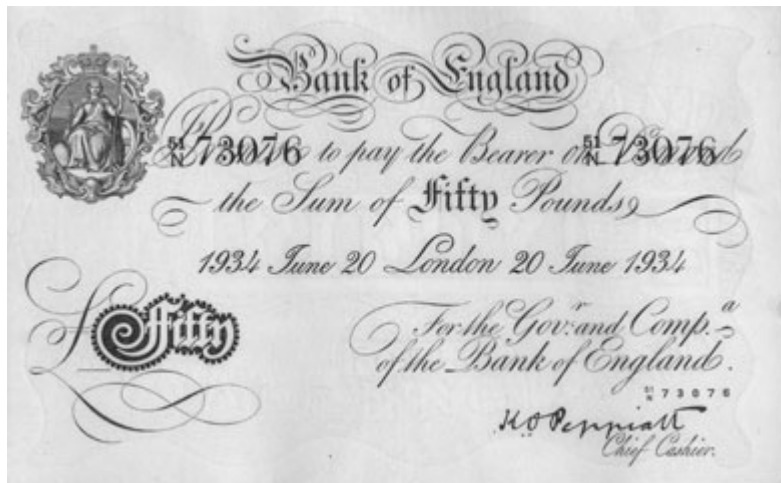 Bank of England
51 N 73076 I Promise to pay the Bearer on Demand 51 N 73076
the Sum of Fifty Pounds
1934 June 20 London 20 June 1934
£ Fifty
For the Govr. and Compa.
of the Bank of England.
51 N 73076
K O Peppiatt
Chief Cashier.